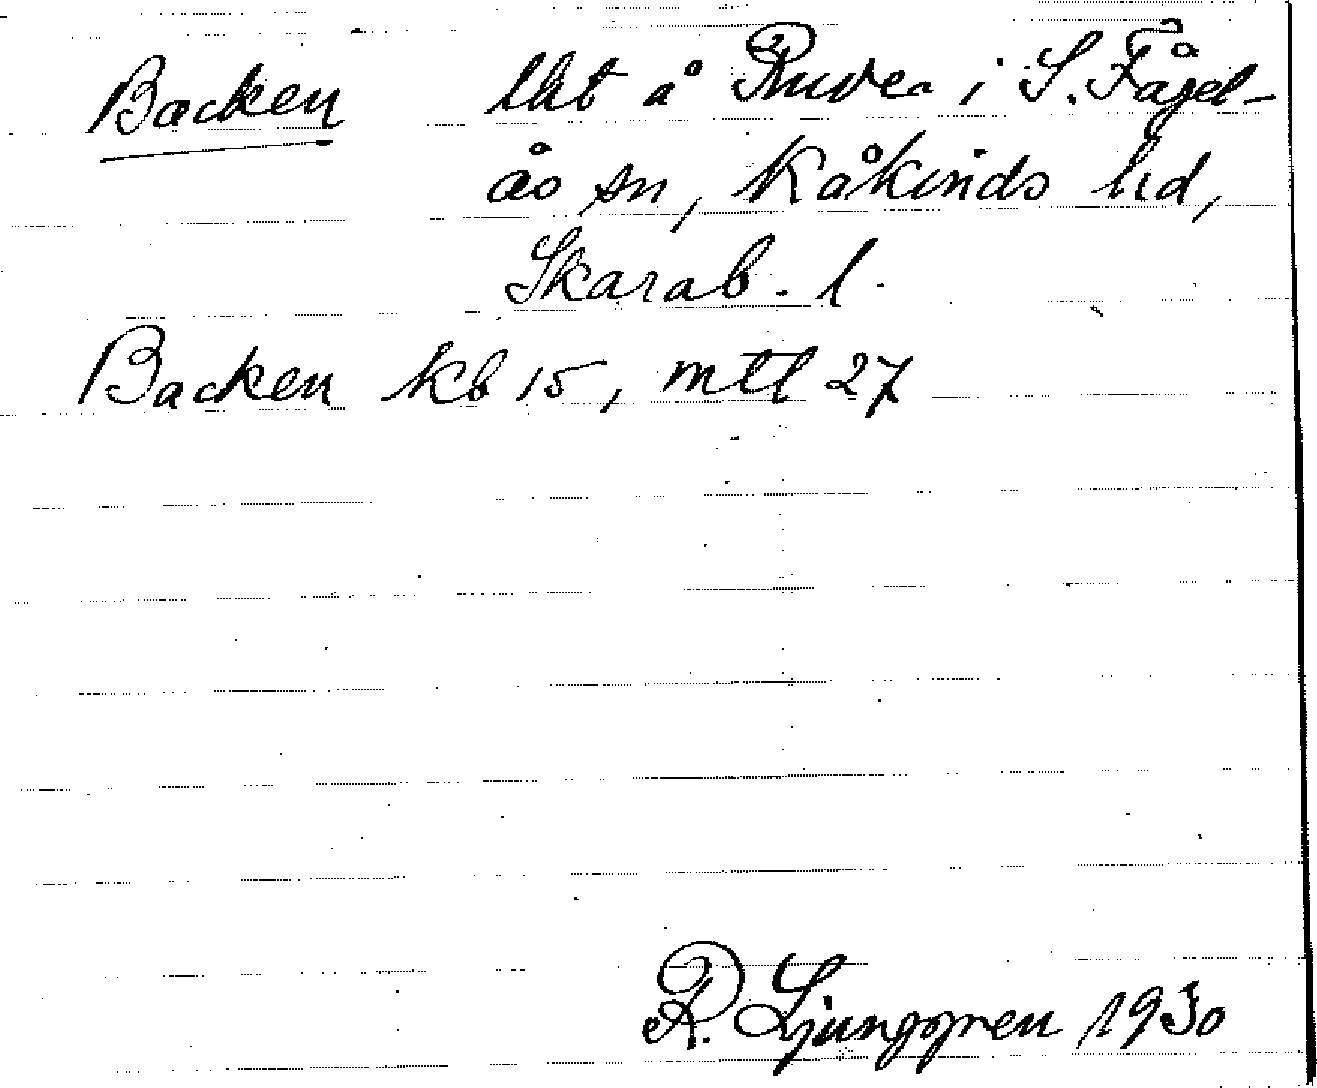 Backen lht å Ruder i S. Fågel-
ås sn, Kåkinds hd,
Skarab. l.
Backen kb 15, mtl 27
R. Ljunggren 1930